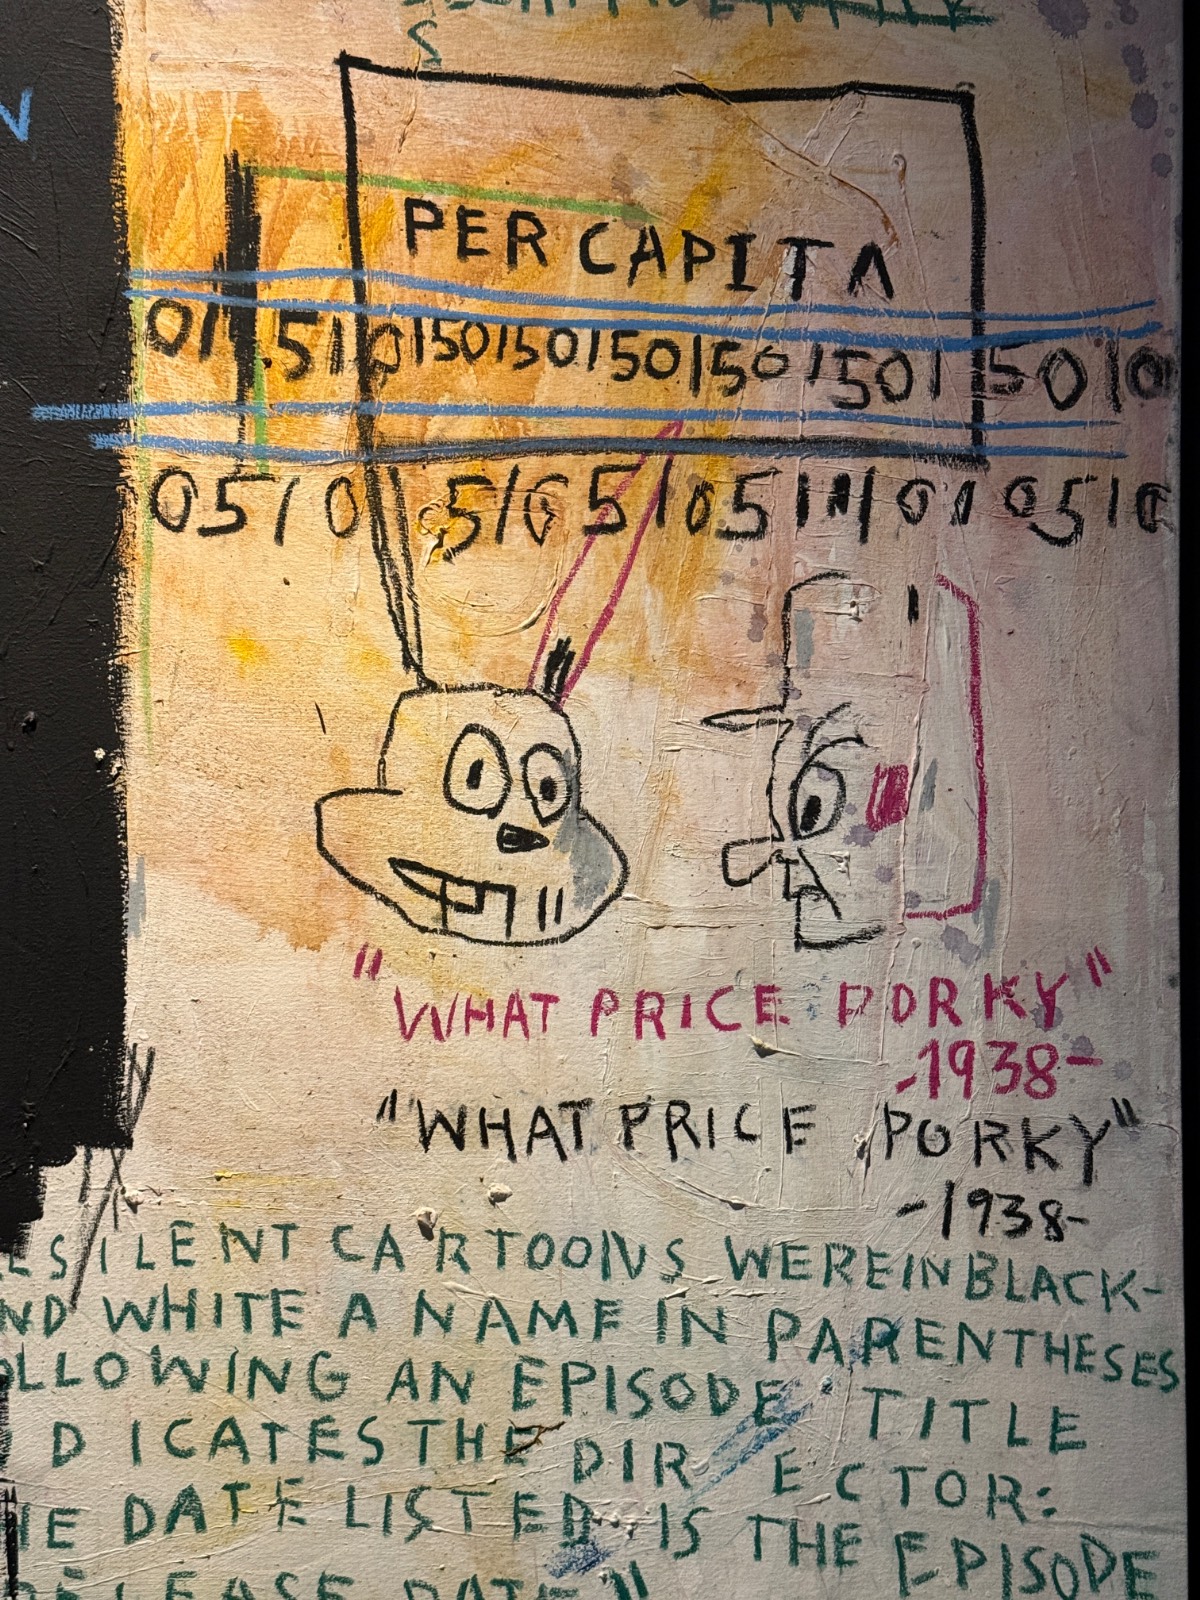 S
PER CAPITA
01 51015015015015015015010
05/0 5/0 5105111010510
"WHAT PRICE PORKY"
-1938-
"WHAT PRICE PORKY"
-1938-
SILENT CARTOONS WERE IN BLACK-
ND WHITE A NAME IN PARENTHESES
OLLOWING AN EPISODE TITLE
DICATES THE DIR ECTOR:
HE DATE LISTED IS THE EPISODE
RELEASE DATE"